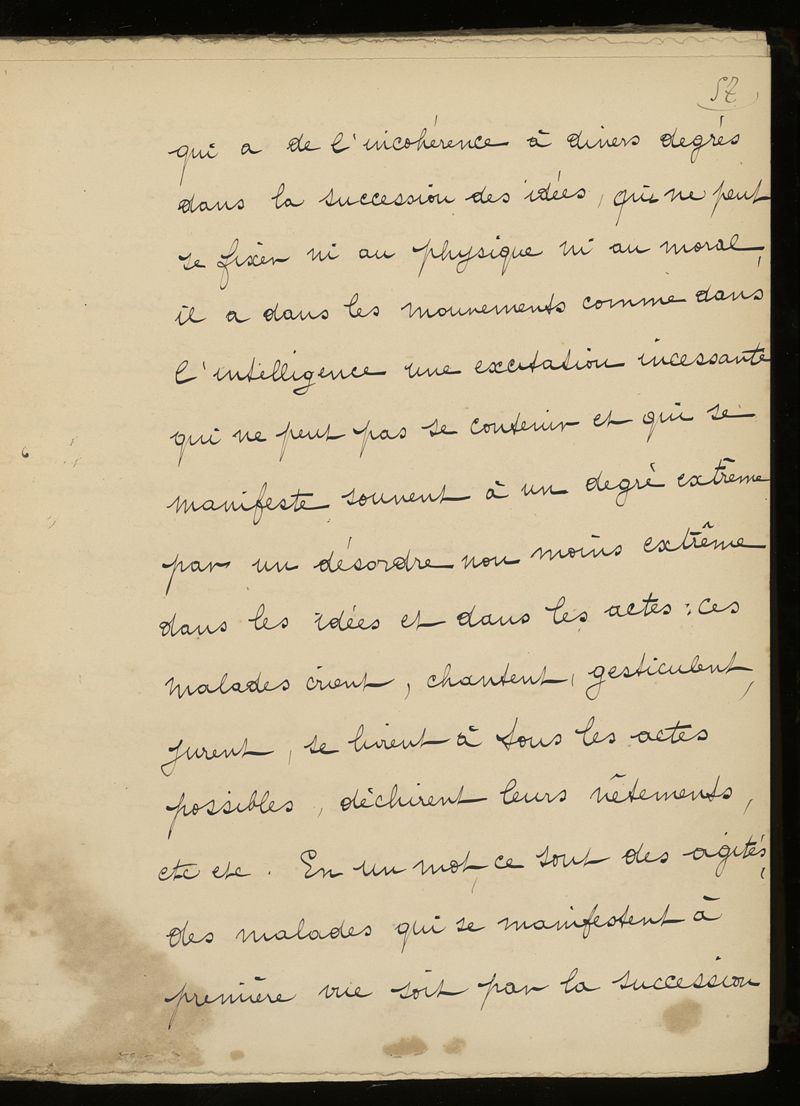 57
qui a de l'incohérence à divers degrés
dans la succession des idées, qui ne peut
se fixer ni au physique ni au moral,
il a dans les mouvements comme dans
l'intelligence une excitation incessante
qui ne peut pas se contenir et qui se
manifeste souvent à un degré extrême
par un désordre non moins extrême
dans les idées et dans les actes : ces
malades crient, chantent, gesticulent,
jurent, se livrent à tous les actes
possibles, déchirent leurs vêtements,
etc etc. En un mot, ce sont des agités,
des malades qui se manifestent à
première vue soit par la succession